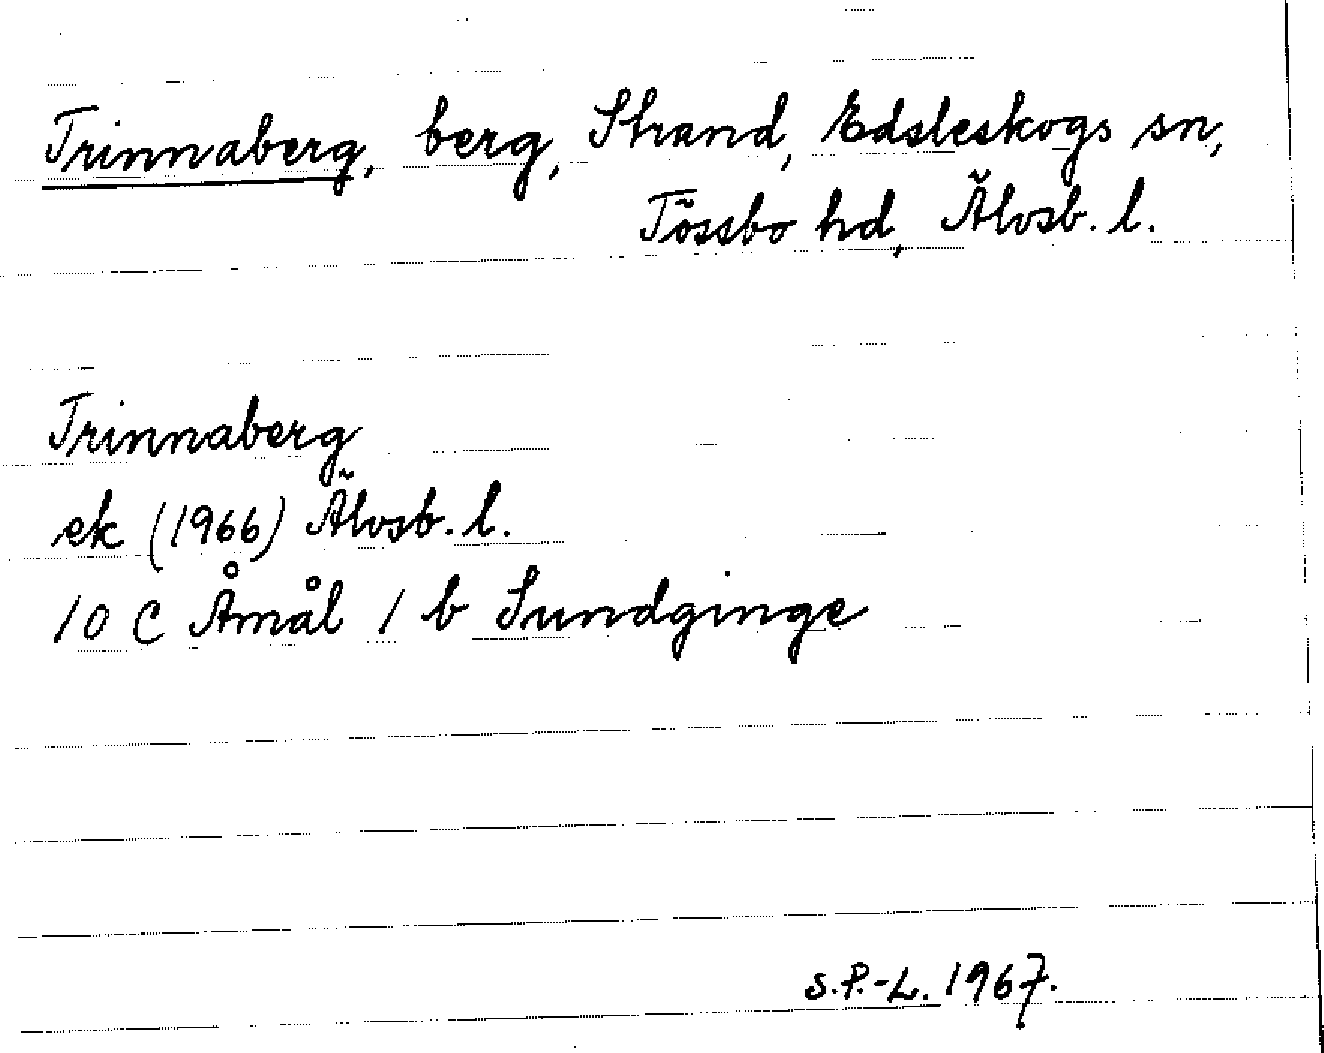 Trinnaberg, berg, Strand, Edsleskogs sn,
Tössbo hd, Älvsb. l.
Trinnaberg
ek (1966) Älvsb. l.
10 C Åmål 1 b Sundginge
S.P.-L. 1967.